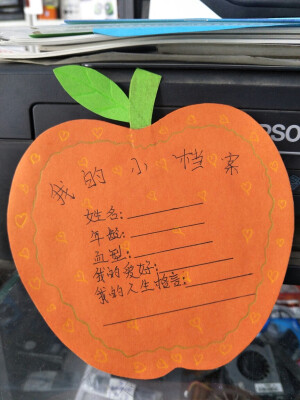 我的小档案
PSON
姓名:
年龄:
血型:
我的爱好:
我的人生格言: